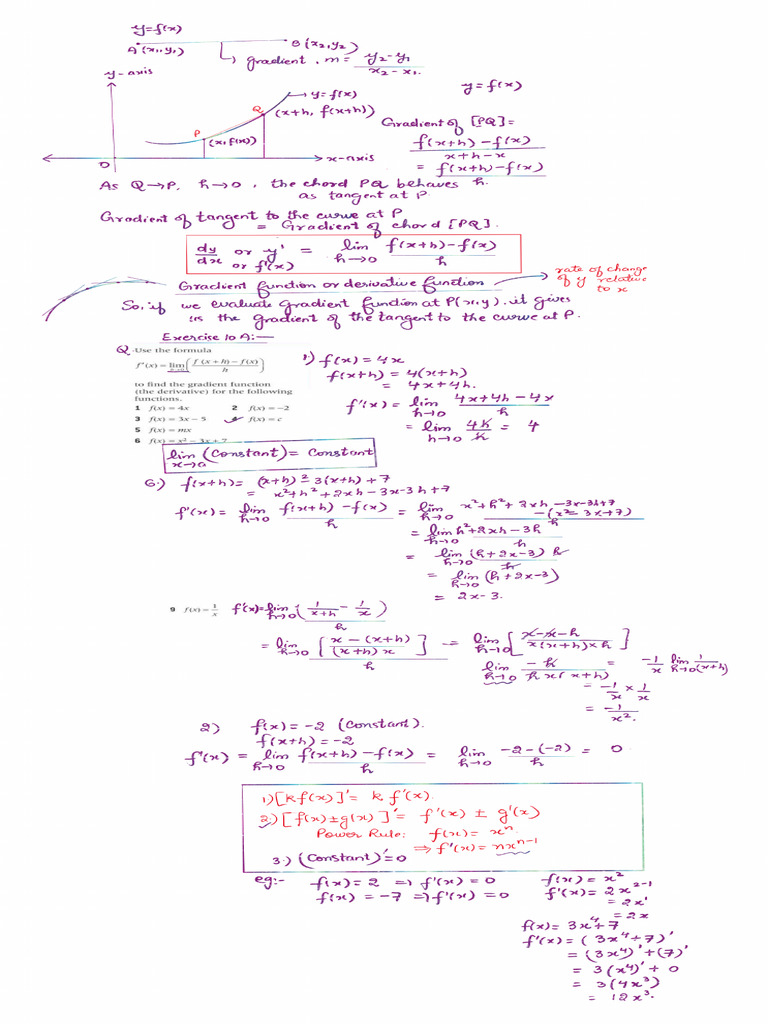 y=f(x)
A(x₁,y₁) B(x₂,y₂)
gradient, m = (y₂-y₁)/(x₂-x₁).
y-axis
y=f(x)
y=f(x)
Q (x+h, f(x+h))
Gradient of [PQ] =
P (x,f(x))
(f(x+h)-f(x))/(x+h-x)
O x-axis
= (f(x+h)-f(x))/h.
As Q→P, h→0, the chord PQ behaves
as tangent at P.
Gradient of tangent to the curve at P
= Gradient of chord [PQ].
dy/dx or y' = lim h→0 (f(x+h)-f(x))/h
or f'(x)
Gradient function or derivative function
rate of change
of y relative
to x
So, if we evaluate Gradient function at P(x,y), it gives
us the gradient of the tangent to the curve at P.
Exercise 10A:—
Q. Use the formula
f'(x) = lim h→0 ((f(x+h)-f(x))/h)
to find the gradient function
(the derivative) for the following
functions.
1 f(x) = 4x 2 f(x) = -2
3 f(x) = 3x - 5 4 f(x) = c
5 f(x) = mx
6 f(x) = x² - 3x + 7
1) f(x) = 4x
f(x+h) = 4(x+h)
= 4x+4h.
f'(x) = lim h→0 (4x+4h-4x)/h
= lim h→0 4h/h = 4
lim x→a (Constant) = Constant
6) f(x+h) = (x+h)²-3(x+h)+7
= x²+h²+2xh-3x-3h+7
f'(x) = lim h→0 (f(x+h)-f(x))/h = lim h→0 (x²+h²+2xh-3x-3h+7-(x²-3x+7))/h
= lim h→0 (h²+2xh-3h)/h
= lim h→0 (h+2x-3)h/h
= lim h→0 (h+2x-3)
= 2x-3.
9 f(x) = 1/x f'(x) = lim h→0 (1/(x+h) - 1/x)/h
= lim h→0 [(x-(x+h))/((x+h)x)]/h = lim h→0 [(x-x-h)/(x(x+h)×h)]
lim h→0 -h/(hx(x+h)) = -1/x lim h→0 1/(x+h)
= -1/x × 1/x
= -1/x².
2) f(x) = -2 (Constant).
f(x+h) = -2
f'(x) = lim h→0 (f(x+h)-f(x))/h = lim h→0 (-2-(-2))/h = 0
1) [kf(x)]' = k f'(x).
2) [f(x)±g(x)]' = f'(x) ± g'(x)
Power Rule: f(x) = xⁿ
⇒ f'(x) = nxⁿ⁻¹
3.) (Constant)' = 0
eg:- f(x) = 2 ⇒ f'(x) = 0
f(x) = -7 ⇒ f'(x) = 0
f(x) = x²
f'(x) = 2x²⁻¹
= 2x¹
= 2x
f(x) = 3x⁴+7
f'(x) = (3x⁴+7)'
= (3x⁴)'+(7)'
= 3(x⁴)' + 0
= 3(4x³)
= 12x³.